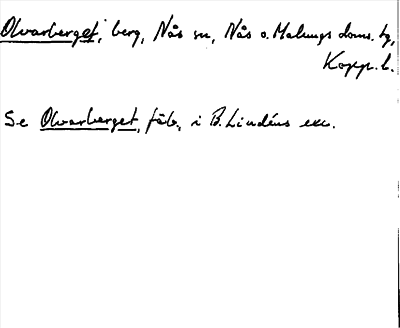 Olvarberget, berg, Nås sn, Nås o. Malungs doms. tg,
Kopp. l.
Se Olvarberget, fäb., i B. Lindéns exc.